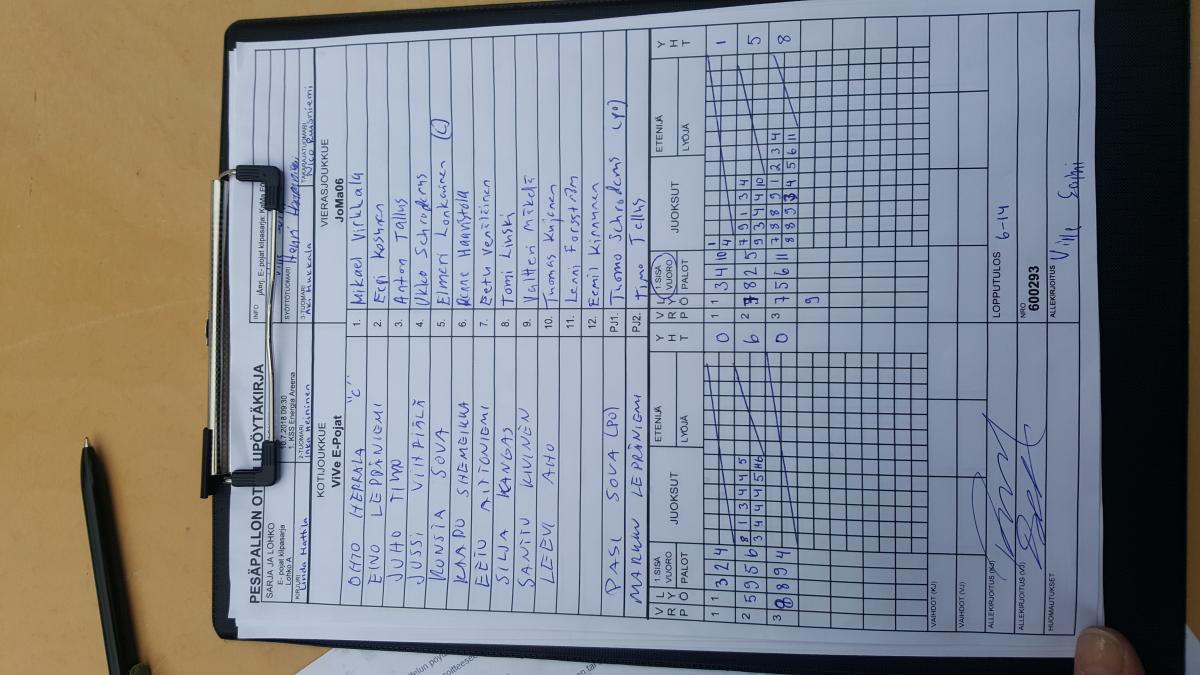 PESÄPALLON OT UPÖYTÄKIRJA
SARJA JA LOHKO
E- pojat kilpasarja
Lohko A
.7.2018 09:30
1. KSS Energia Areena
INFO
jArrj. E- pojat kilpasarja:
KIRJURI
Linda Mattila
2-TUOMARI
Inka Heininen
SYÖTTÖTUOMARI
Henri
3-TUOMARI
Hukkala
TAKARAJATUOMARI
Nico
KOTIJOUKKUE
ViVe E-Pojat
VIERASJOUKKUE
JoMa06
OHTO HERRALA "C" 1. Mikael Virkkala
EINO LEPPÄNIEMI 2. Eepi Kosunen
JUHO TIMO 3. Anton Tallus
JUSSI VIHPIÄLÄ 4. Ukko Schroderus
RONJA SOVA 5. Elmeri Lonkainen (C)
KAAPO SHEMEIKKA 6. Haavistola
EETU AITTONIEMI 7. Eetu Venäläinen
SILJA KANGAS 8. Tomi Linski
SANTTU KIVINEN 9. Valtteri Mäkelä
LEEVI AHO 10. Thomas Kujanen
11. Lenni Forsström
12. Eemil Kinnunen
PASI SOVA (PO) PJ1. Thomo Schroderus (PO)
MARKUU LEPPÄNIEMI PJ2. Timo Tallus
V R P L Y Ö 1.SISÄ VUORO PALOT JUOKSUT ETENIJÄ LYÖJÄ Y H T V R P L Y Ö 1.SISÄ VUORO PALOT JUOKSUT ETENIJÄ LYÖJÄ Y H T
1 1 3 2 4 0 1 1 3 4 10 1 4 1
2 5 9 5 6 8 1 3 4 4 5 6 2 7 8 2 5 7 9 1 3 4 5
3 4 4 4 5 9 3 4 4 10
3 8 8 9 4 0 3 7 5 6 11 7 8 8 9 1 2 3 4 8
8 8 9 3 4 5 6 11
9
VAIHDOT (KJ)
VAIHDOT (VJ)
ALLEKIRJOITUS (KJ)
LOPPUTULOS 6-14
ALLEKIRJOITUS (VJ)
NRO
600293
HUOMAUTUKSET
ALLEKIRJOITUS
Ville Salmi